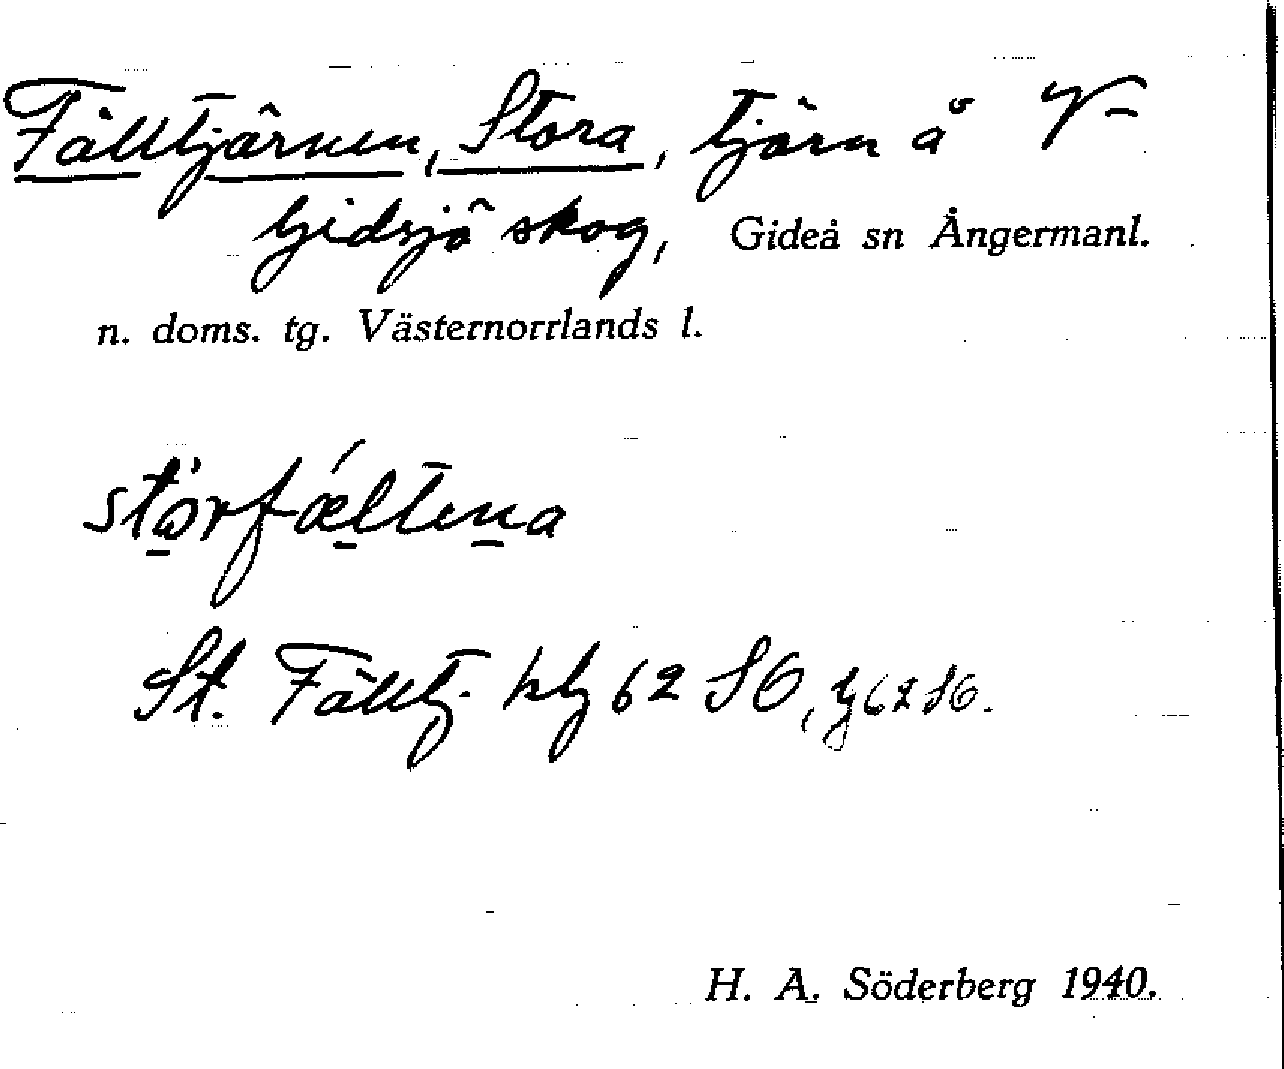 Fälltjärnen, Stora, tjärn å V-
Gidsjö skog, Gideå sn Ångermanl.
n. doms. tg. Västernorrlands l.
störfæltena
St. Fälltj. hlg 62 SO, g 62 SO.
H. A. Söderberg 1940.